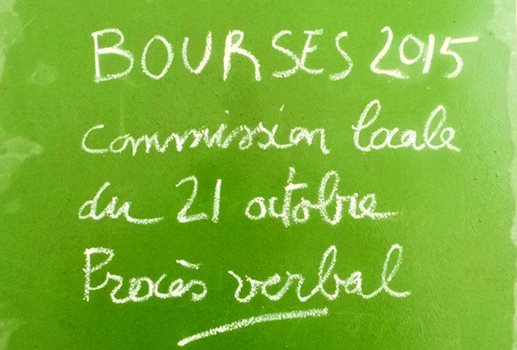 BOURSES 2015
commission locale
du 21 octobre
Procès verbal